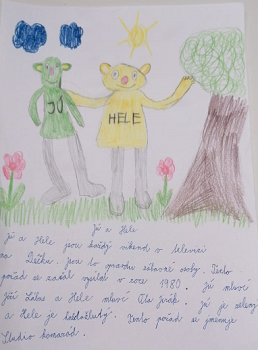 JŮ
HELE
Jů a Hele
Jů a Hele jsou každý víkend v televizi
na Déčku. Jsou to opravdu zábavné osoby. Tento
pořad se začal vysílat v roce 1980. Jů mluví
Jiří Lábus a Hele mluví Ota Jirák. Jů je zelený
a Hele je žlutý. Tento pořad se jmenuje
Studio kamarád.